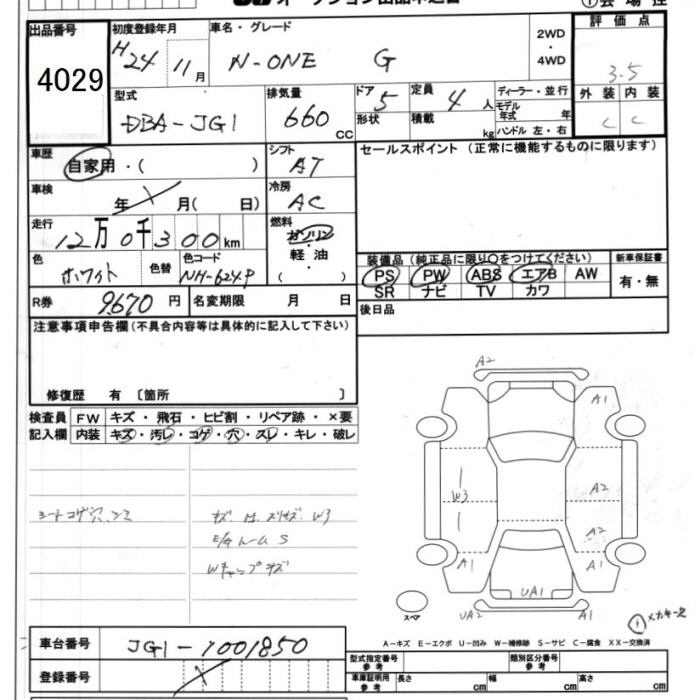 出品番号
4029
初度登録年月
H24 11月
車名・グレード
N-ONE G
2WD
・
4WD
評価点
3.5
外装 内装
C C
型式
DBA-JG1
排気量
660 cc
ドア
5
形状
定員
4 人
積載
kg
ディーラー・並行
モデル年式 年
ハンドル 左・右
車歴
自家用・( )
シフト
AT
セールスポイント (正常に機能するものに限ります)
車検
年 月( 日)
冷房
AC
走行
12万0千300km
燃料
ガソリン
・
軽油
・
( )
色
ホワイト
色替
色コード
NH-624P
装備品 (純正品に限り○をつけてください)
PS PW ABS エアB AW
SR ナビ TV カワ
新車保証書
有・無
R券
9670円
名変期限 月 日
後日品
注意事項申告欄(不具合内容等は具体的に記入して下さい)
修復歴 有 〔箇所 〕
検査員記入欄
FW キズ・飛石・ヒビ割・リペア跡・×要
内装 キズ・汚レ・コゲ・穴・スレ・キレ・破レ
シートコゲ穴、シミ
W3
E/Gルーム S
Wキャップキズ
A2
A1
W3
A2
A2
A1
A1
UA1
UA2
A1
スペア
A-キズ E-エクボ U-凹み W-補修跡 S-サビ C-腐食 XX-交換済
車台番号
JG1-1001850
登録番号
型式指定番号
参考
類別区分番号
参考
車庫証明用
参考
長さ cm
幅 cm
高さ cm